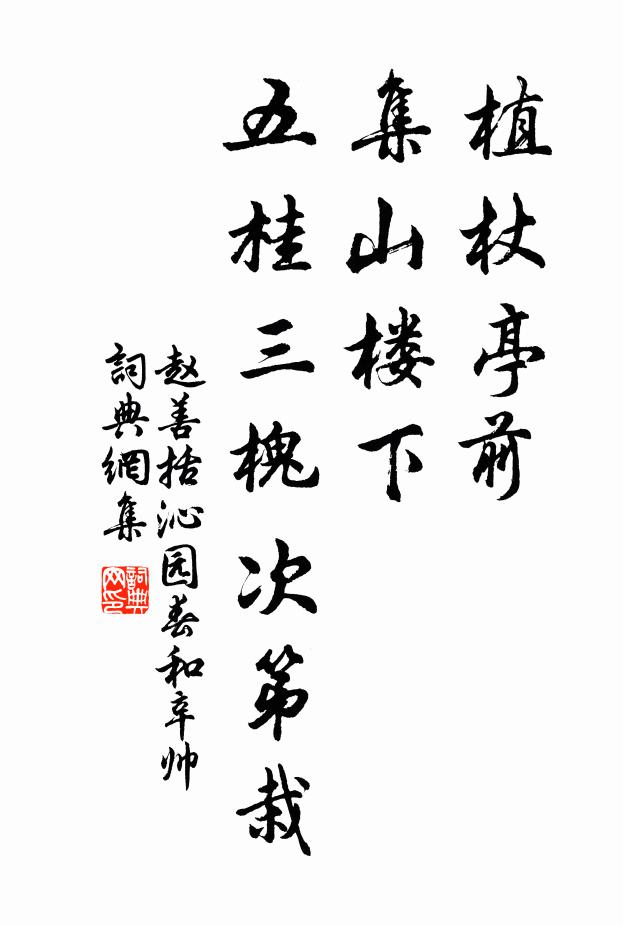 植杖亭前
集山楼下
五桂三槐次第栽
赵善括沁园春和辛帅
詞典網集
詞典网印